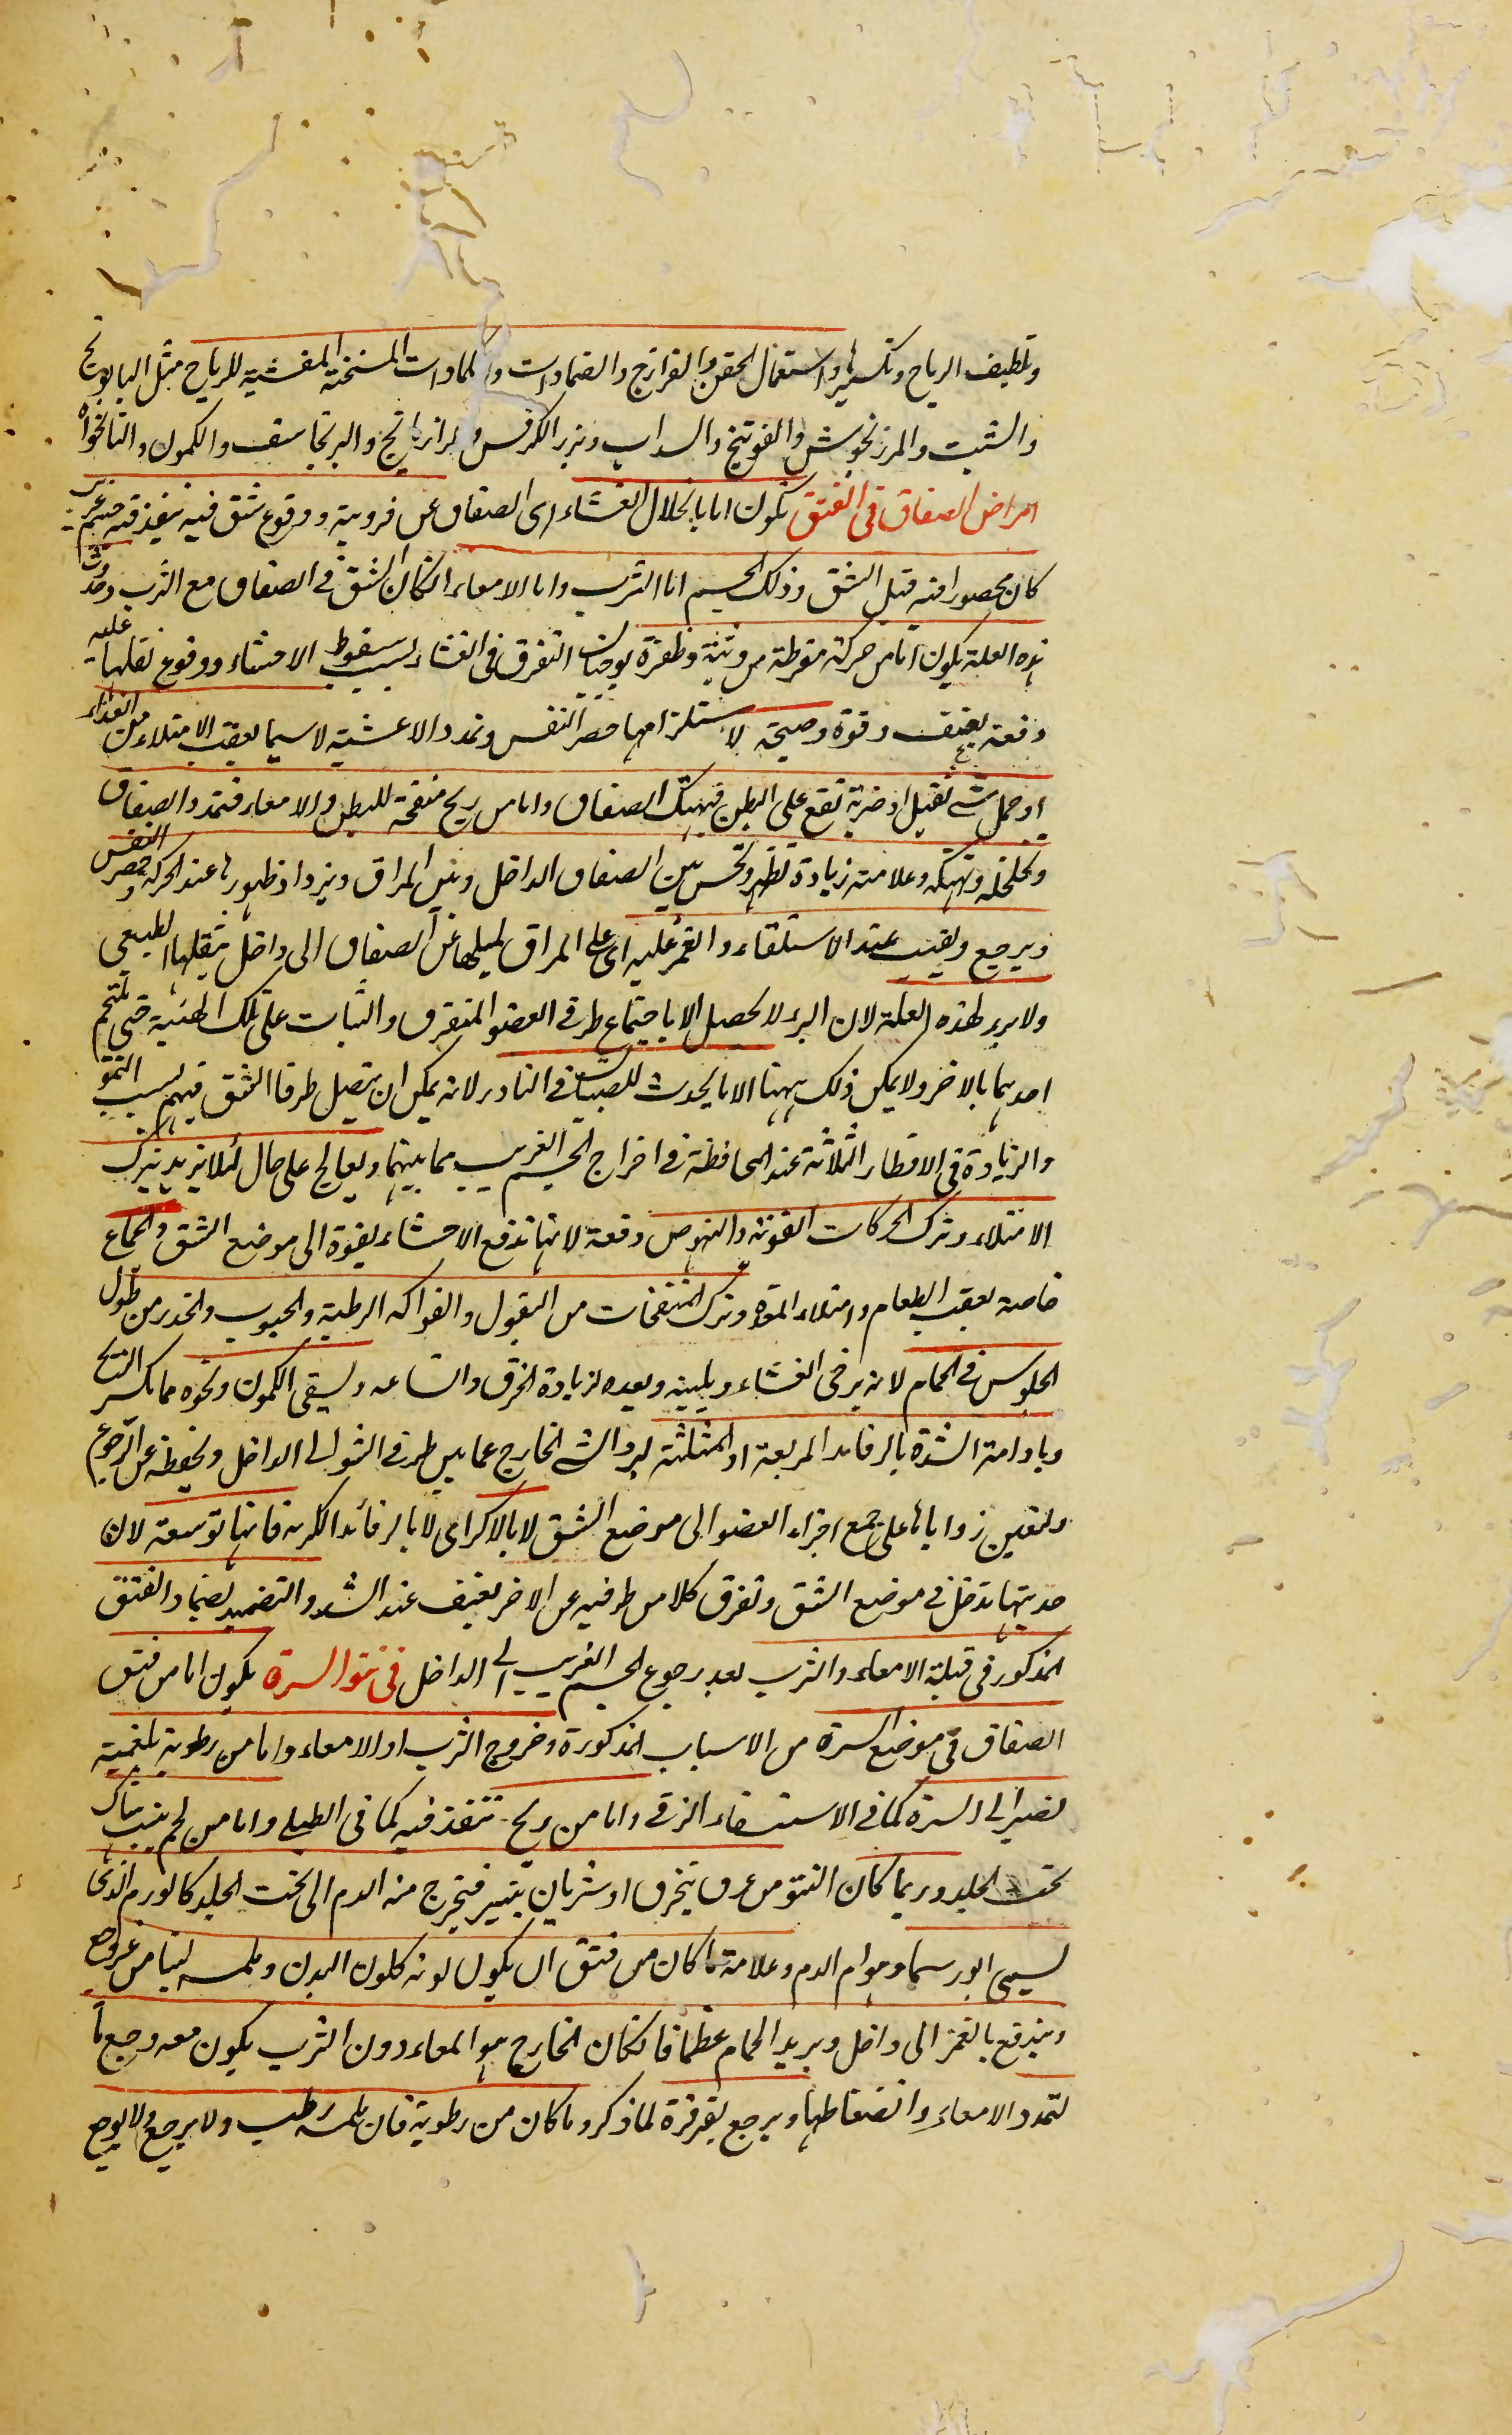 وتلطيف الرياح وتكسيرها واستعمال الحقن والفرازج والضمادات والكمادات المسخنة المفشية للرياح مثل البابونج
والشبت والمرزنجوش والفوتنج والسداب وبزر الكرفس والرازيانج والبرنجاسف والكمون والنانخواه
امراض الصفاق فى الفتق تكون اما بانحلال الغشاء اى الصفاق عن فرديته ووقوع شق فيه ينفذ فيه جسم غريب
كان محصورا فيه قبل الشق وذلك الجسم اما الثرب واما الامعاء انكان الشق فى الصفاق مع الثرب وحدوث
هذه العلة يكون اما من حركة مفرطة من وثبة وظفرة يوجبان التفرق فى الغشاء بسبب سقوط الاحشاء ووقوع ثقلها عليه
دفعة بعنف وقوة وصيحة لاستلزامها حصر النفس وتمدد الاغشية لاسيما بعقب الامتلاء من الغذاء
او حمل شئ ثقيل او ضربة تقع على البطن فيهتك الصفاق واما من ريح منفخة للبطن والامعاء فتمدد الصفاق
وتخلخله وتهتكه وعلامته زيادة تظهر وتحس بين الصفاق الداخل وبين المراق ويزداد ظهورها عند الحركة وحصر النفس
ويرجع ويغيب عند الاستلقاء والغمز عليه اى على المراق لميلها عن الصفاق الى داخل بثقلها الطبيعى
ولا برء لهذه العلة لان البرء لا يحصل الا باجتماع طرفى العضو المتفرق والثبات على تلك الهيئة حتى يلتحم
احدهما بالاخر ولا يمكن ذلك ههنا الا ما يحدث للصبيان فى النادر لانه يمكن ان يتصل طرفا الشق فيهم بسبب النمو
والزيادة فى الاقطار الثلاثة عند المحافظة فى اخراج الجسم الغريب مما بينهما ويعالج على حال لئلا يزيد بترك
الامتلاء وترك الحركات القوية والنهوض دفعة لانها تدفع الاحشاء بقوة الى موضع الشق والجماع
خاصة بعقب الطعام وامتلاء المعدة وترك المنفخات من البقول والفواكه الرطبة والحبوب والحذر من طول
الجلوس فى الحمام لانه يرخى الغشاء ويلينه ويعده لزيادة الخرق واتساعه ويسقى الكمون ونحوه مما يكسر الريح
وبادامة الشد بالرفائد المربعة او المثلثة ليرد الشئ الخارج عما بين طرفى الشق الى الداخل ويحفظه عن الرجوع
ولتعين زواياها على جمع اجزاء العضو الى موضع الشق لا بالاكراى لا بالرفائد الكرية فانها توسعه لان
حدبتها تدخل فى موضع الشق وتفرق كلا من طرفيه عن الاخر بعنف عند الشد والتضميد بضماد الفتق
المذكور فى قيلة الامعاء والثرب بعد رجوع الجسم الغريب الى الداخل فى نتو السرة يكون اما من فتق
الصفاق فى موضع السرة من الاسباب المذكورة وخروج الثرب او الامعاء واما من رطوبة بلغمية
تصير الى السرة كما فى الاستسقاء الزقى واما من ريح تنفذ فيه كما فى الطبلى واما من لحم ينبت هناك
تحت الجلد وربما كان النتو من عرق ينخرق او شريان ينبثر فيخرج منه الدم الى تحت الجلد كالورم الذى
يسمى ابورسما وهو ام الدم وعلامة ما كان من فتق ان يكون لونه كلون البدن وملمسه لينا من غير وجع
ويندفع بالغمز الى داخل ويريد الحمام عظما فانكان الخارج هو المعاء دون الثرب يكون معه وجع ما
لتمدد الامعاء وانضغاطها ويرجع بقرقرة لما ذكر وما كان من رطوبة فان ملمسه رطب ولا يرجع ولا يوجع